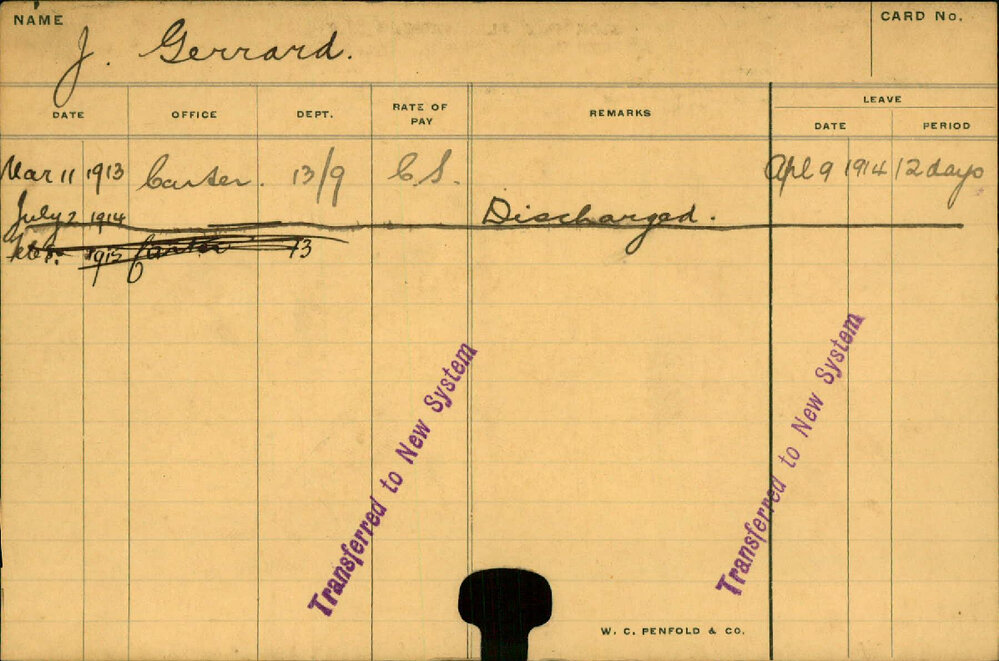 NAME
J. Gerrard.
CARD No.
DATE OFFICE DEPT. RATE OF PAY REMARKS LEAVE
DATE PERIOD
Mar 11 1913 Carter. 13/9 C.S. Apl 9 1914 12 days
July 2 1914 Discharged.
1915 Carter 13
Transferred to New System
Transferred to New System
W. C. PENFOLD & CO.